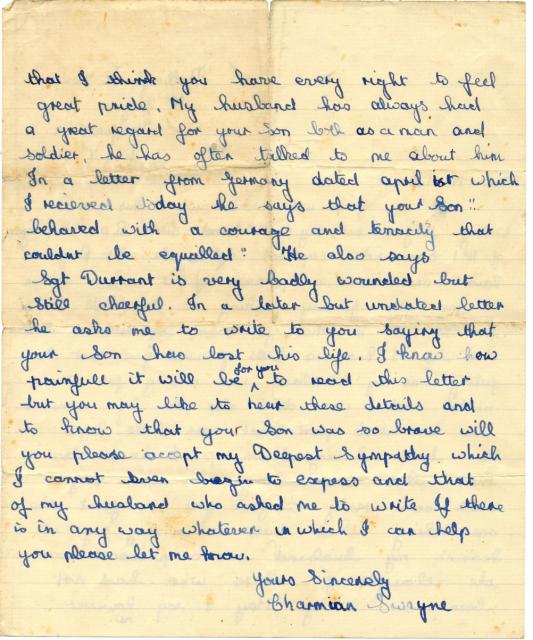 that I think you have every right to feel
great pride. My husband has always had
a great regard for your son both as a man and
soldier, he has often talked to me about him
In a letter from Germany dated april 1st which
I recieved today he says that your Son "
behaved with a courage and tenacity that
couldnt be equalled" He also says
Sgt Durrant is very badly wounded but
still cheerful. In a later but undated letter
he asks me to write to you saying that
your Son has lost his life. I know how
painfull it will be for you to read this letter
but you may like to hear these details and
to know that your Son was so brave will
you please accept my Deepest Sympathy which
I cannot even begin to express and that
of my husband who asked me to write If there
is in any way whatever in which I can help
you please let me know.
Yours Sincerely
Charmian Swayne